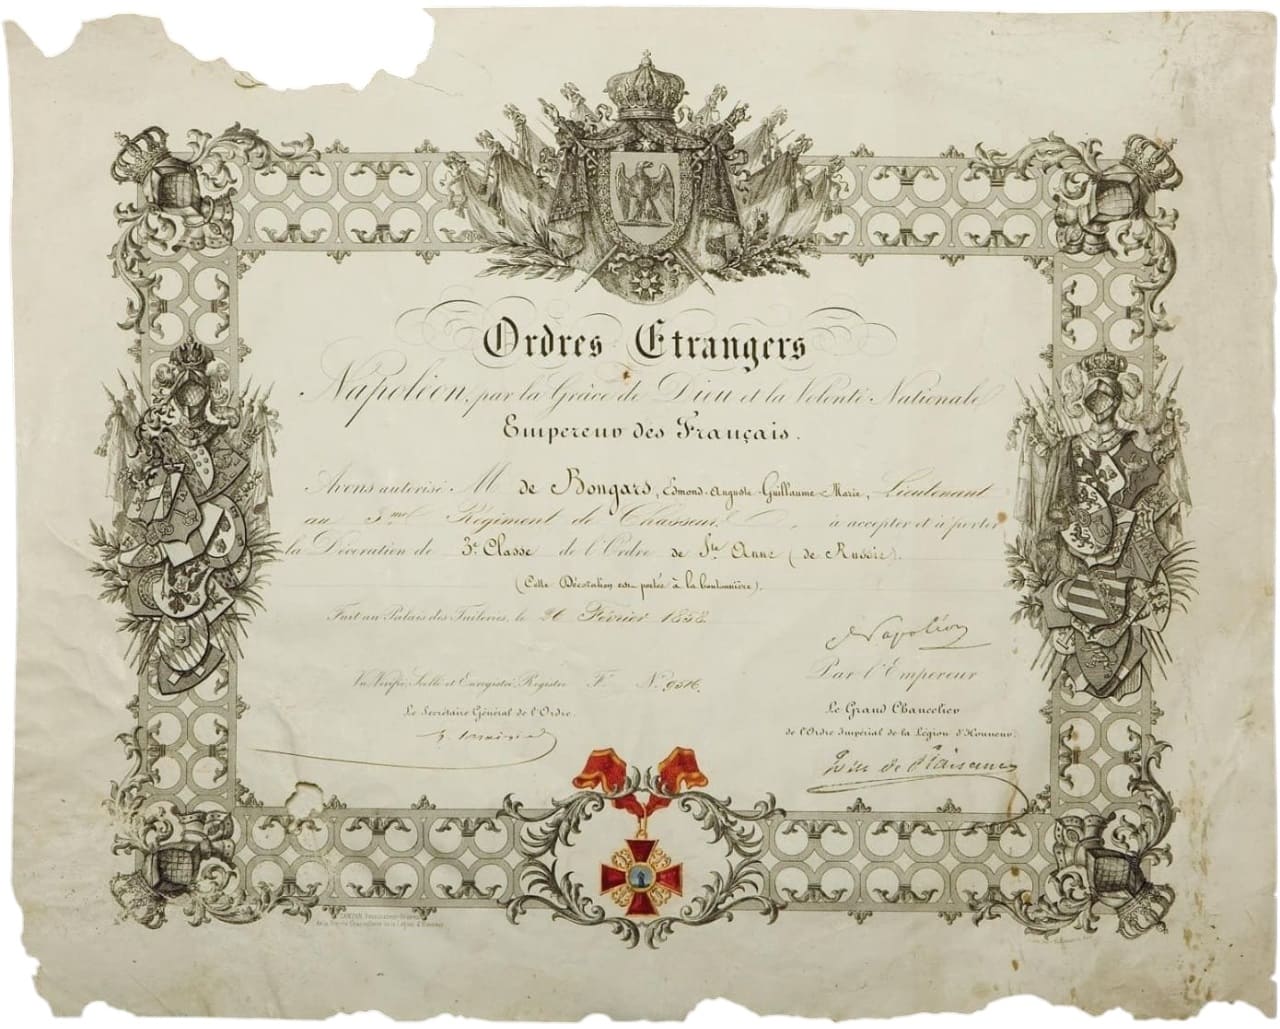 Ordres Etrangers
Napoléon, par la Grâce de Dieu et la Volonté Nationale
Empereur des Français.
Avons autorisé M de Bongars, Edmond-Auguste-Guillaume-Marie, Lieutenant
au 3me Régiment de Chasseurs, à accepter et à porter
la Décoration de 3e Classe de l'Ordre de Ste Anne (de Russie).
(Cette Décoration est portée à la boutonnière).
Fait au Palais des Tuileries, le 26 Février 1858.
Napoléon
Vu, Vérifié, Scellé et Enregistré, Registre F. No. 9516.
Par l'Empereur
Le Secrétaire Général de l'Ordre.
Le Grand Chancelier
de l'Ordre Impérial de la Légion d'Honneur.
Duc de Plaisance